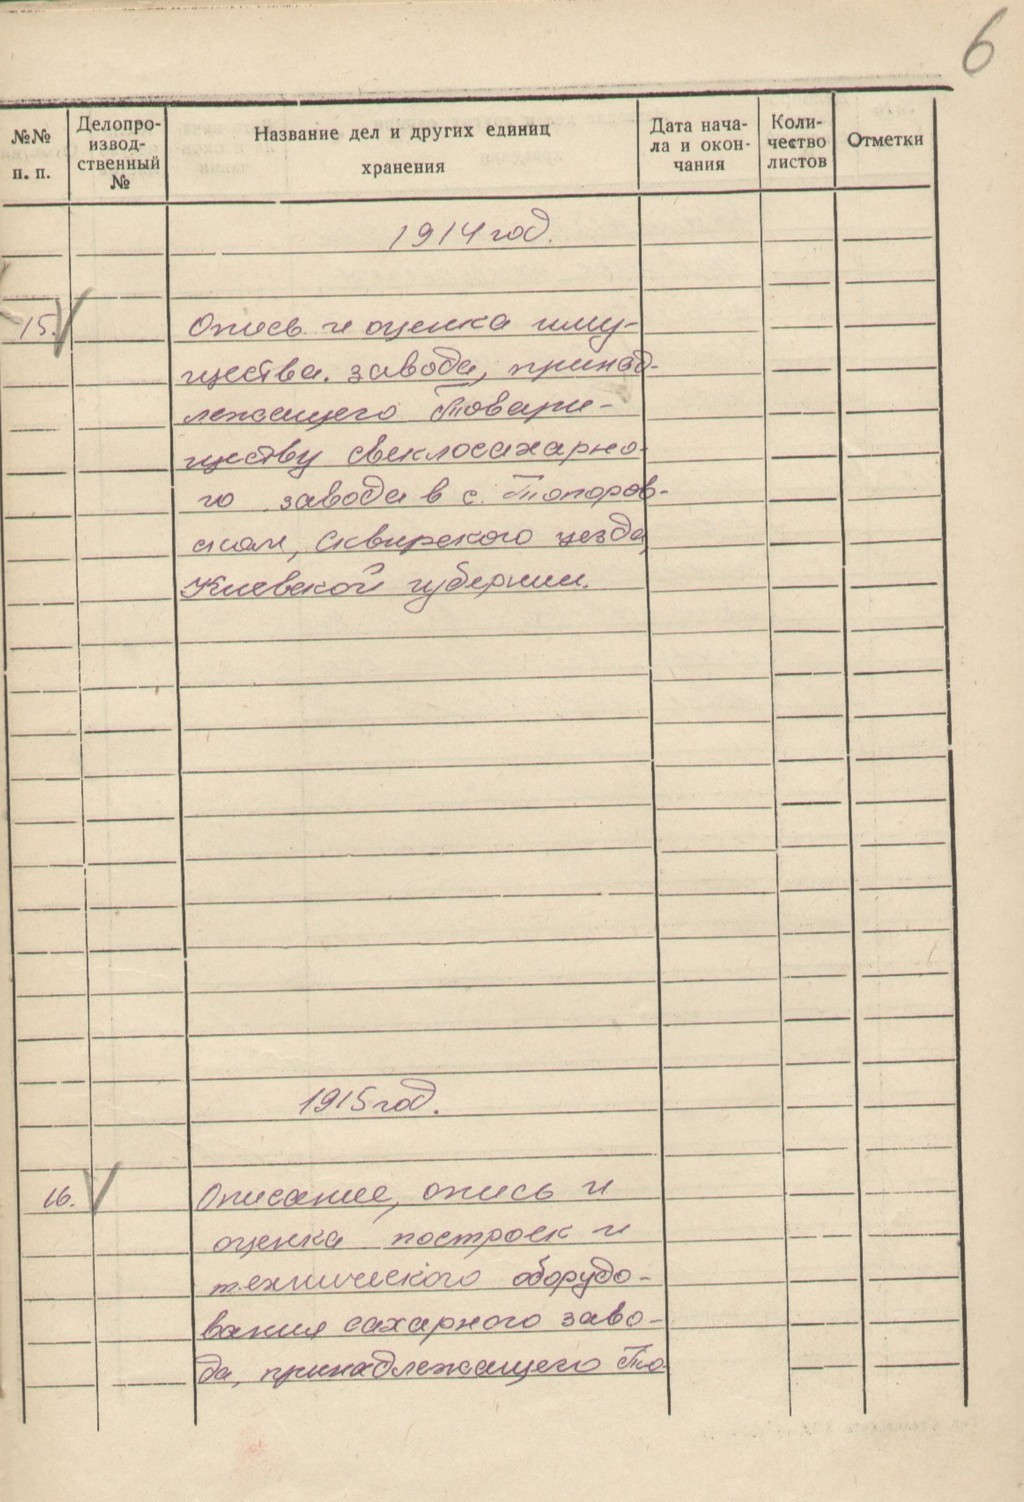 6
№№ п. п.
Делопро-
извод-
ственный
№
Название дел и других единиц
хранения
Дата нача-
ла и окон-
чания
Коли-
чество
листов
Отметки
1914 год.
15.
Опись и оценка иму-
щества завода, принад-
лежащего Товари-
ществу свеклосахарно-
го завода в с. Топоров-
ском, Сквирского уезда,
Киевской губернии.
1915 год.
16.
Описание, опись и
оценка построек и
технического оборудо-
вания сахарного заво-
да, принадлежащего То